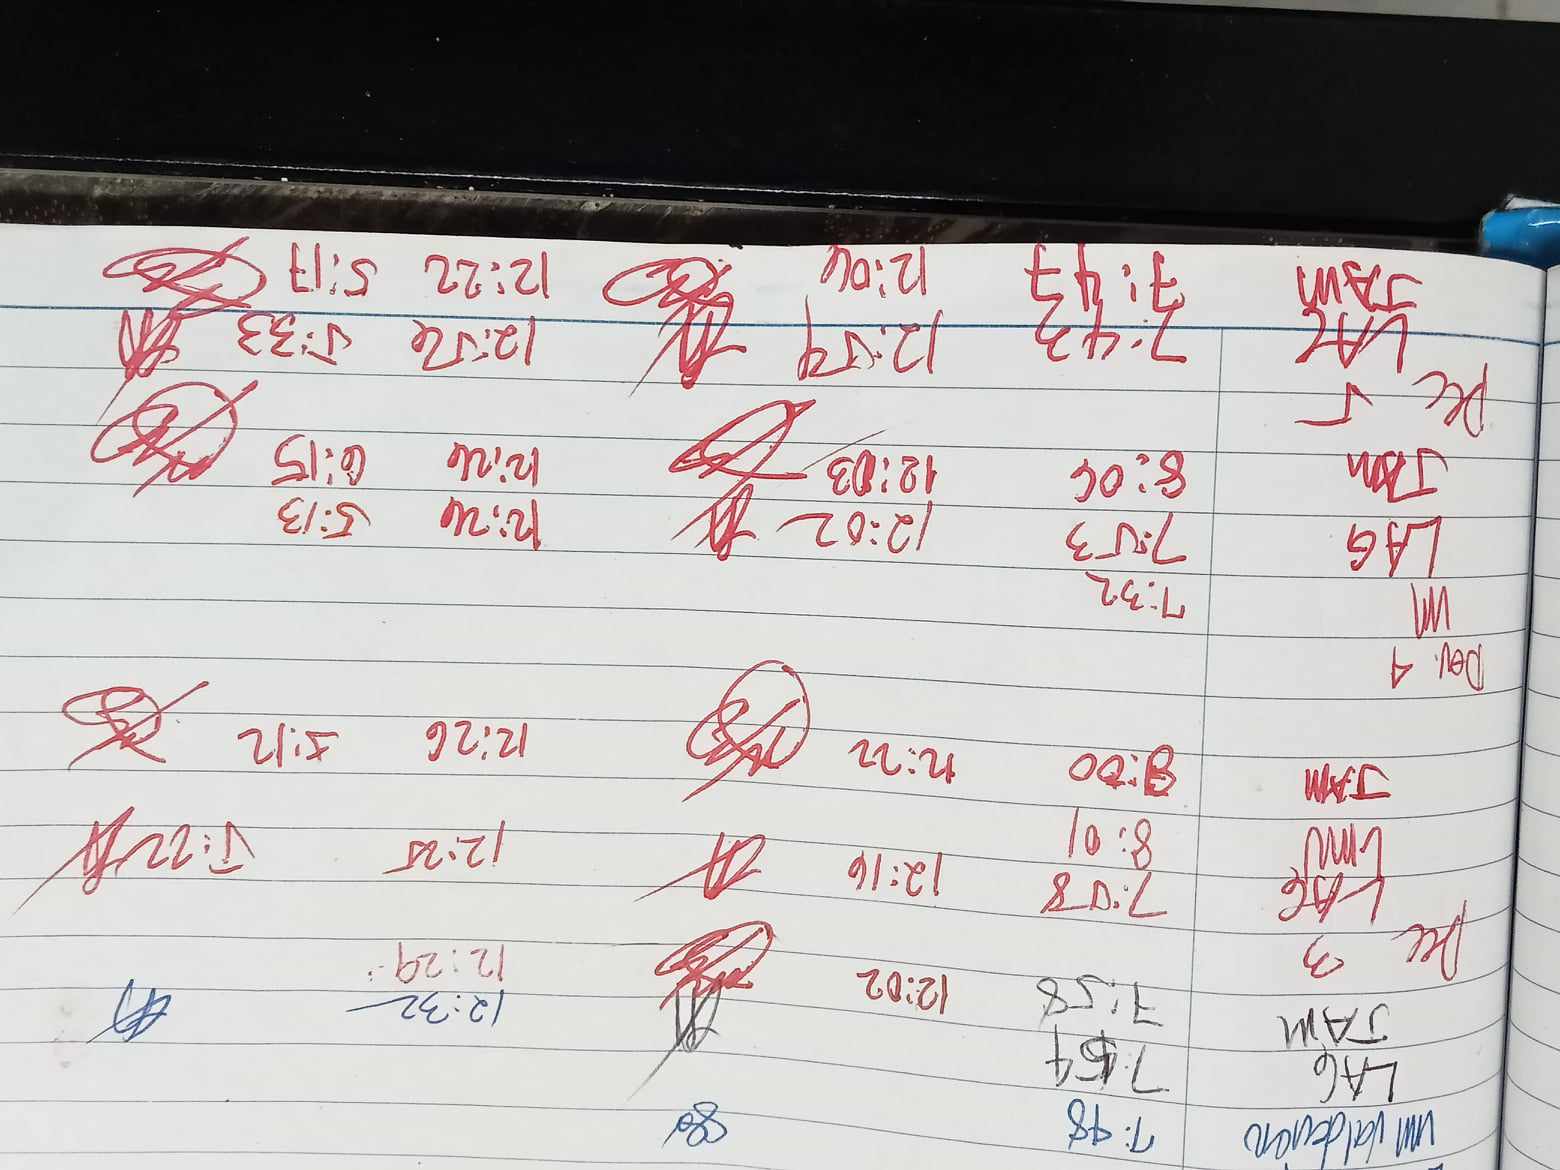 7:48
LAG 7:54 12:32
JAM 7:58 12:02 12:29
Dec 3
LAG 7:58 12:16 12:25 5:22
VMV 8:01
JAM 8:00 12:22 12:26 5:12
Dec. 4
VM 7:32
LAG 7:53 12:02 12:26 5:13
JAM 8:06 12:03 12:26 6:15
Dec 5
LAG 7:43 12:54 12:56 5:33
JAM 7:47 12:06 12:22 5:17